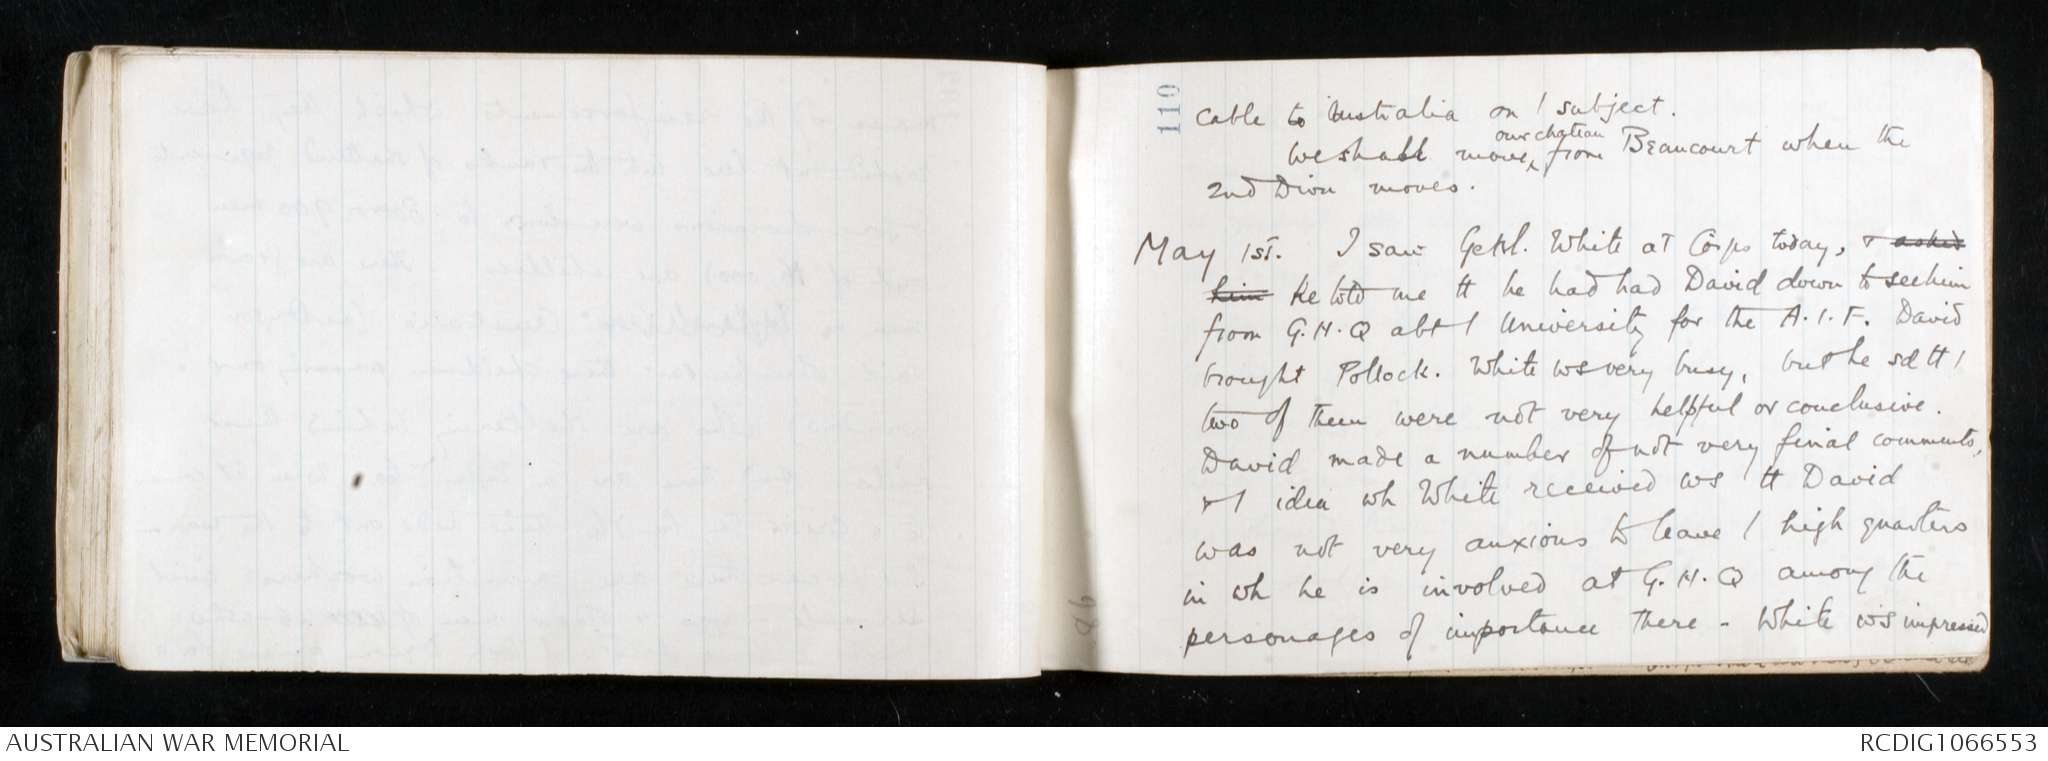 110
cable to Australia on / subject.
We shall move our chateau from Beaucourt when the
2nd Divn moves.
May 1st. I saw Genl. White at Corps today, & asked
him He told me tt he had had David down to see him
from G.H.Q abt / University for the A.I.F. David
brought Pollock. White ws very busy, but he sd tt /
two of them were not very helpful or conclusive.
David made a number of not very final comments,
& / idea wh White received ws tt David
was not very anxious to leave / high quarters
in wh he is involved at G.H.Q among the
personages of importance there - White ws impressed
AUSTRALIAN WAR MEMORIAL
RCDIG1066553